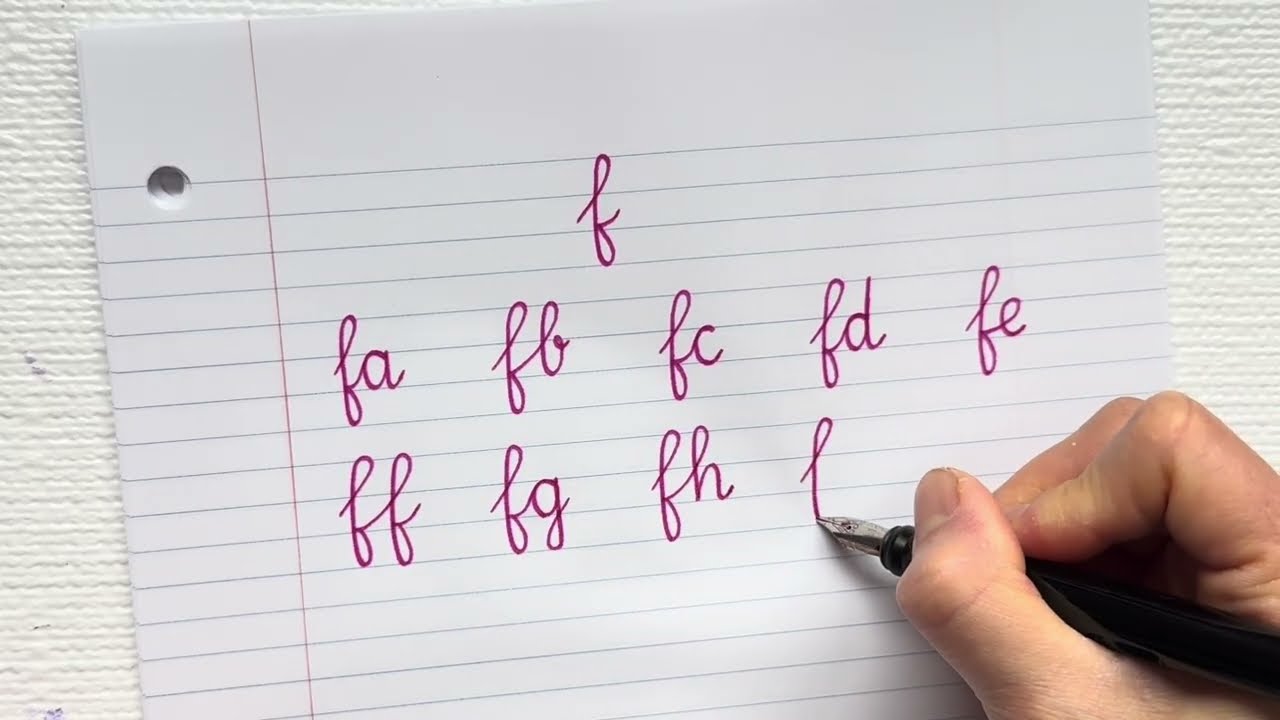 f
fa fb fc fd fe
ff fg fh